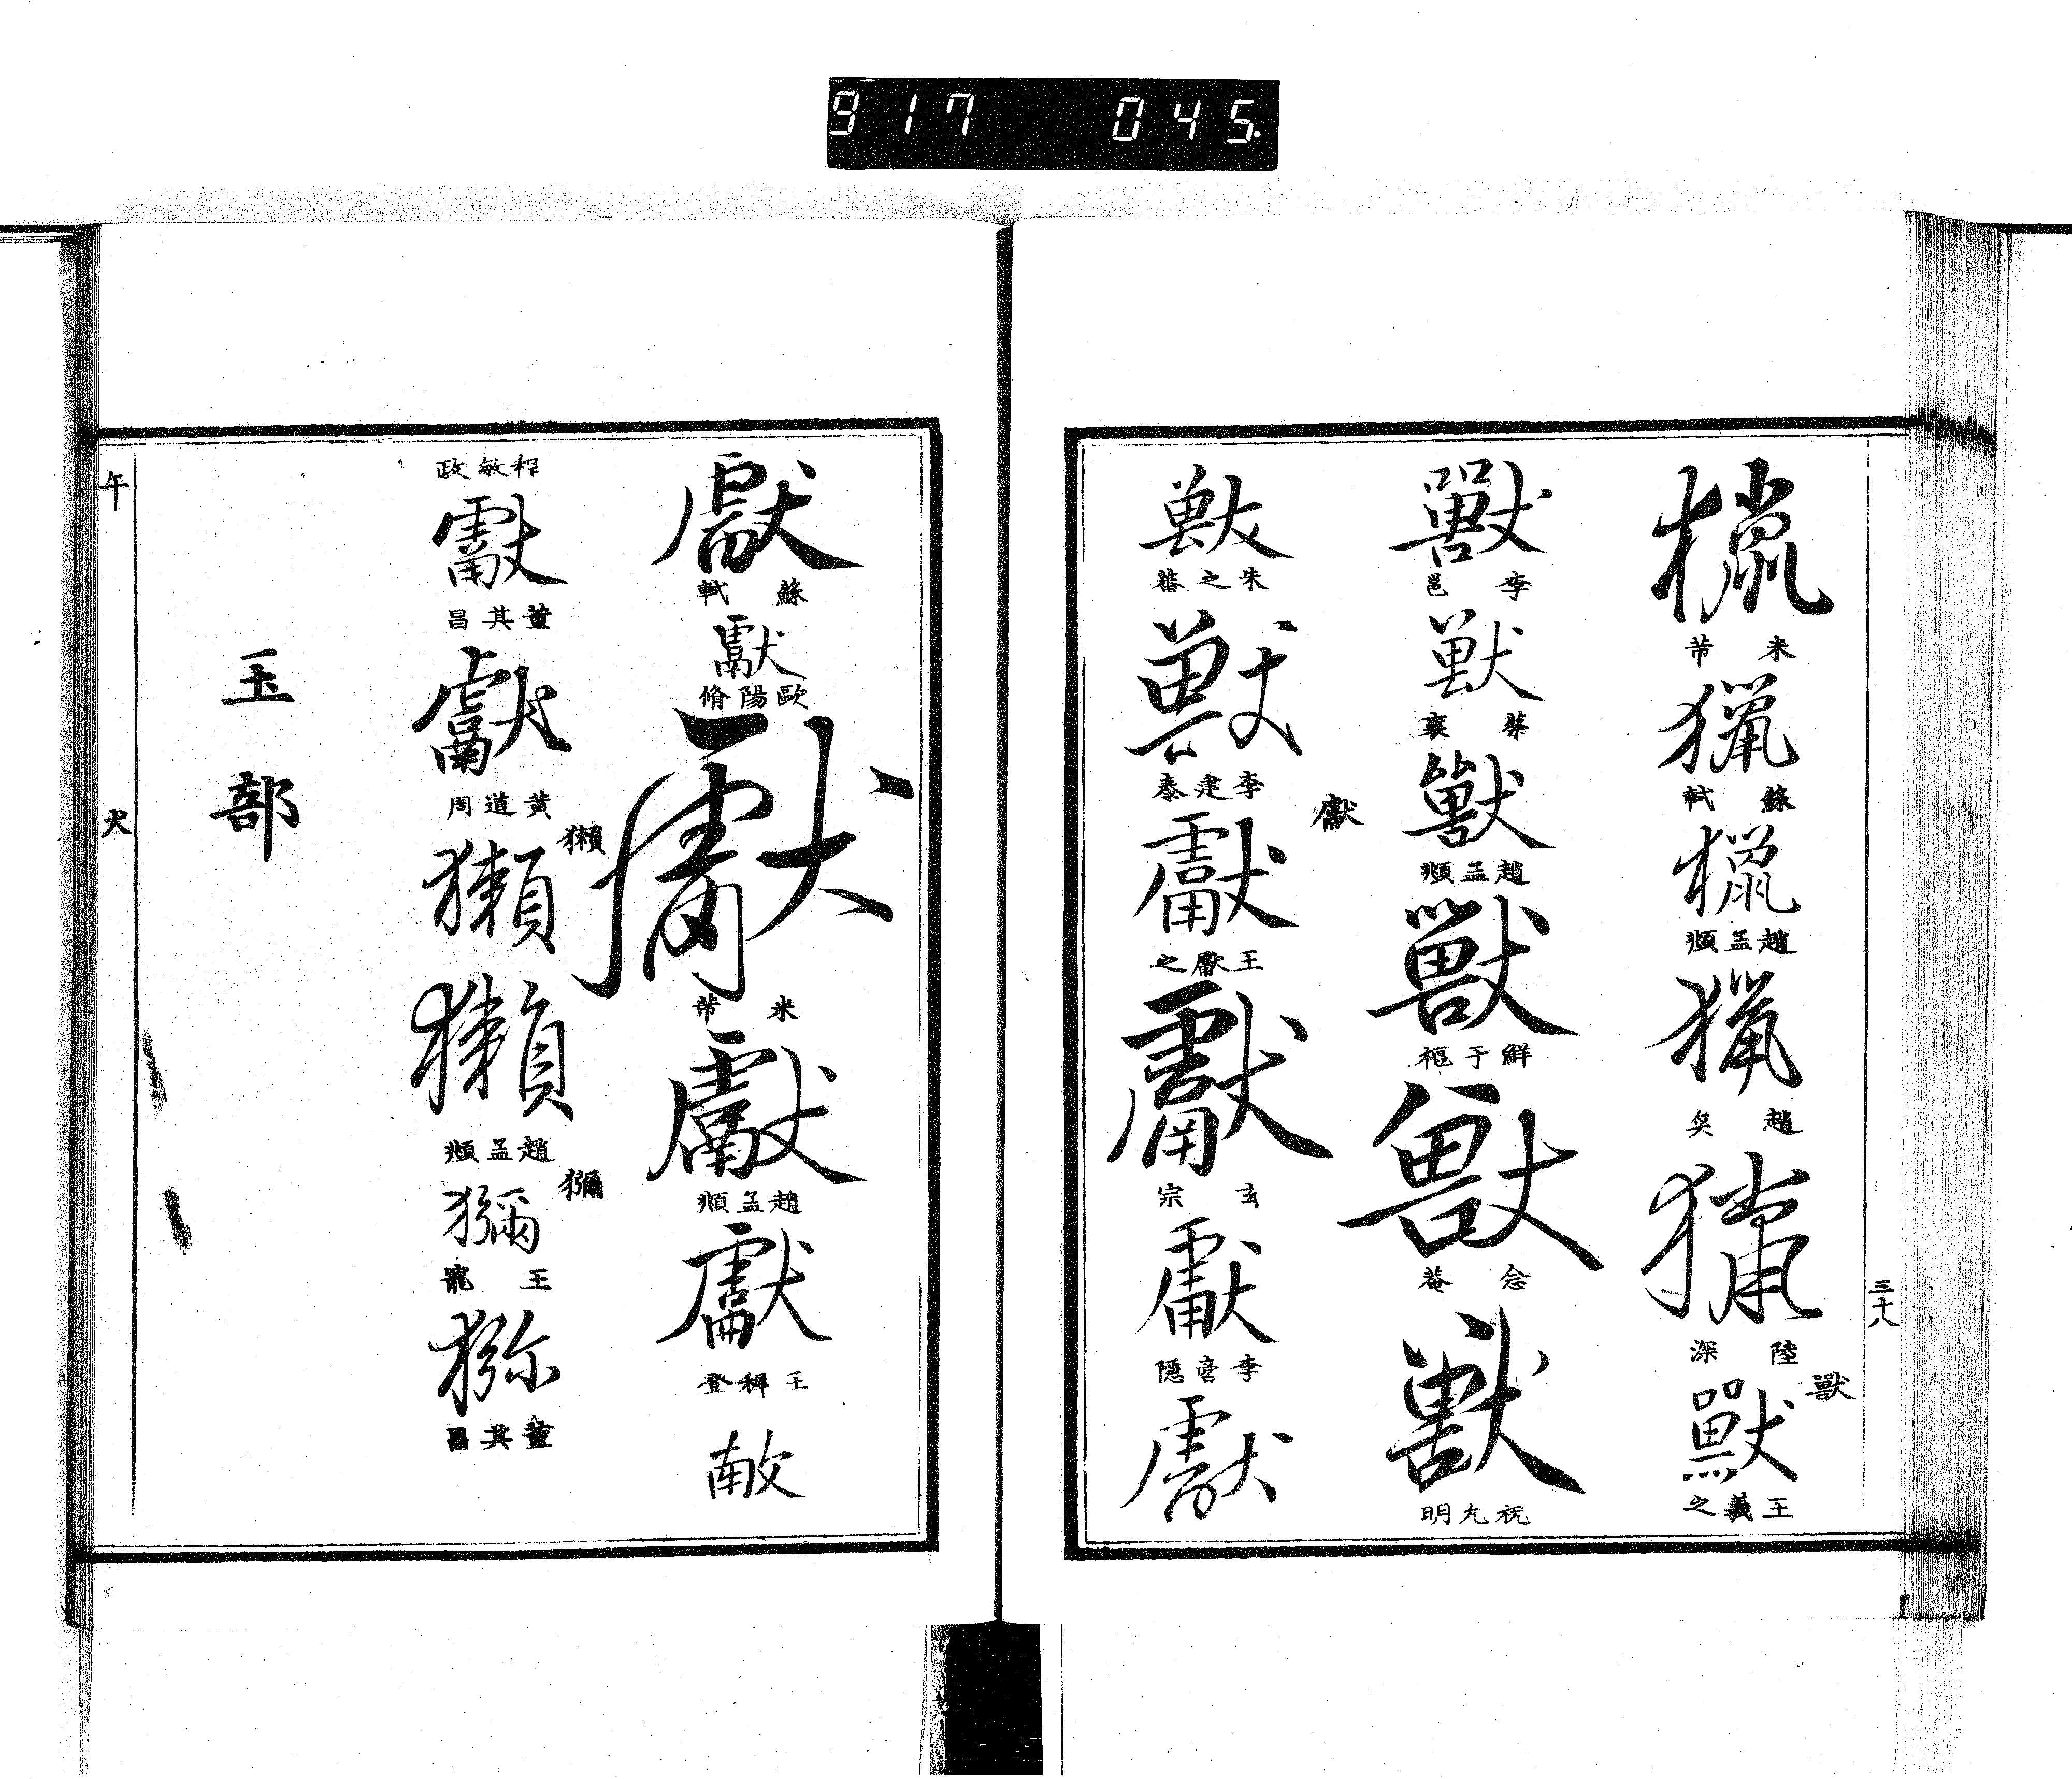 917 045.
三十八
獵
米芾
獵
蘇軾
獵
趙孟頫
獵
趙奕
獵
陸深
獸
獸
王羲之
獸
李邕
獸
蔡襄
獸
趙孟頫
獸
鮮于樞
獸
念菴
獸
祝允明
獸
朱之蕃
獸
李建泰
獻
獻
王獻之
獻
玄宗
獻
李旁隱
獻
獻
蘇軾
獻
歐陽脩
獻
米芾
獻
趙孟頫
獻
王穉登
献
程敏政
獻
董其昌
獻
黃道周
獺
獺
獺
趙孟頫
獼
獼
王寵
猕
董其昌
玉部
午
犬